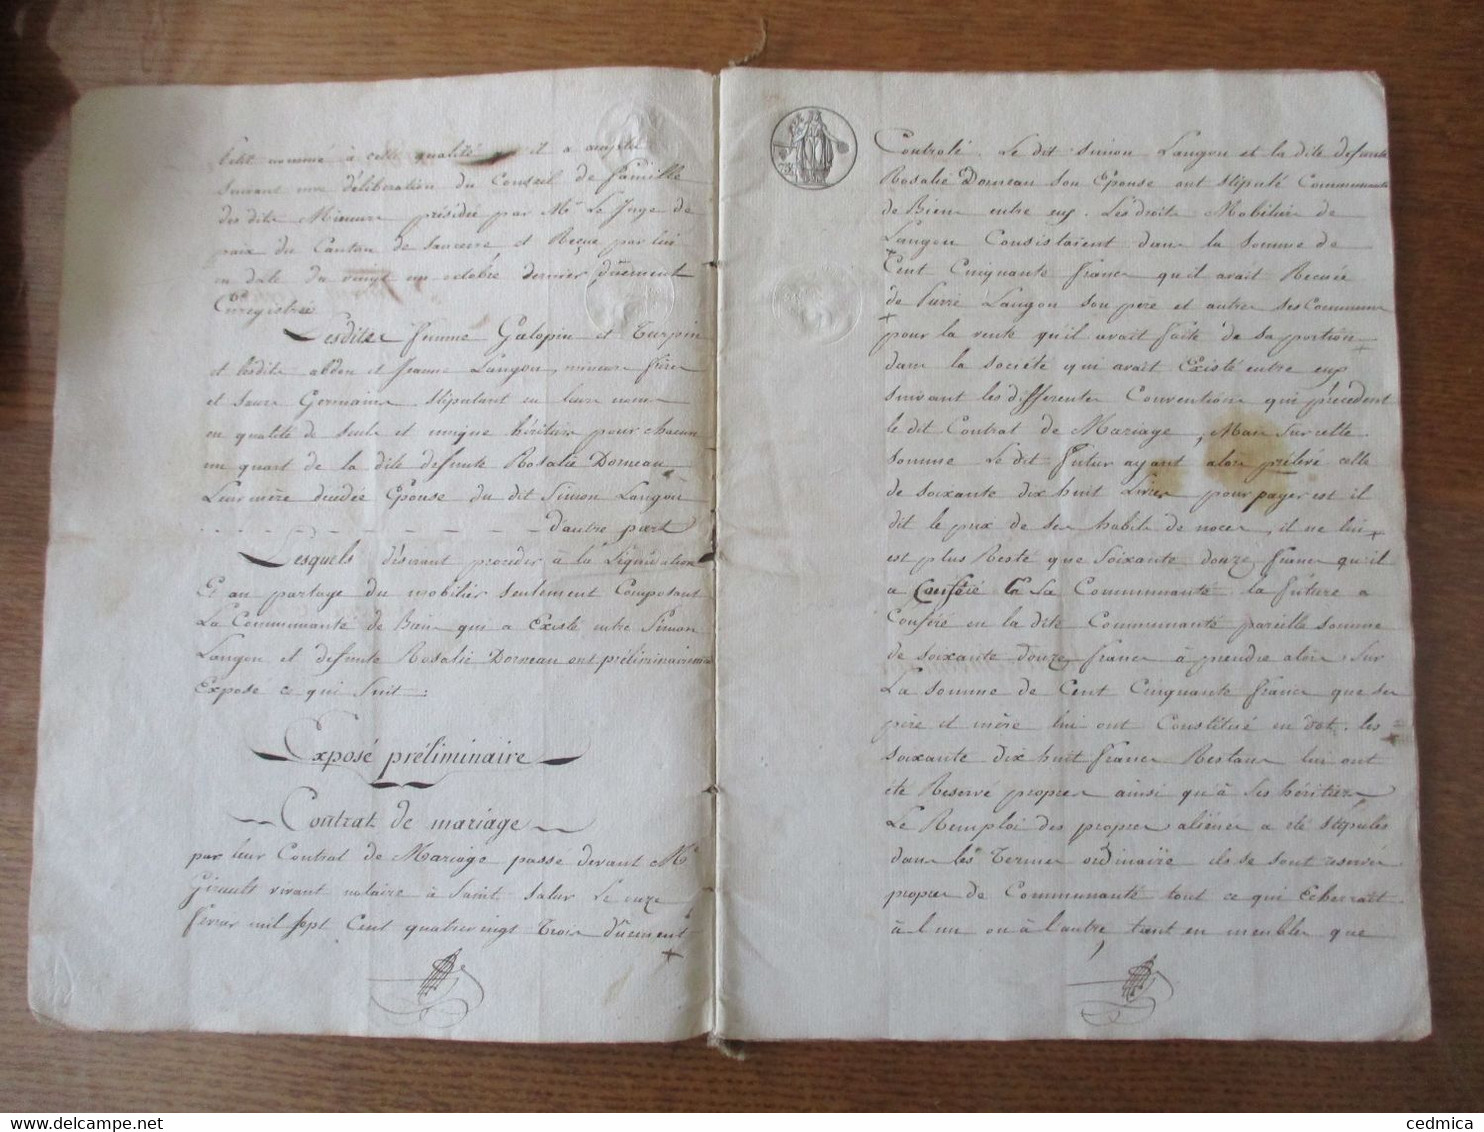 nommé à cette qualité il a
suivant une déliberation du Conseil de famille
des dits Mineurs présidée par Mr Le Juge de
paix du Canton de Sancerre et Reçue par lui
en date du vingt un octobre dernier duement
Enregistrée
Lesdites femme Galopin et Turpin
et lesdits abdon et Jeanne Langou, mineurs frères
et sœurs Germains stipulant en leurs noms
en qualité de seuls et unique héritiers pour chacun
un quart de la dite defunte Rosalie Dorneau
Leur mère décédée Epouse du dit Simon Langou
d'autre part
Lesquels désirant procéder à la Liquidation
Et au partage du mobilier seulement Composant
La Communauté de Biens qui a Existé entre Simon
Langou et defunte Rosalie Dorneau ont préliminairement
Exposé ce qui Suit :
Exposé préliminaire
Contrat de mariage
par leur Contrat de Mariage passé devant Me
Girault vivant notaire à Saint Satur Le onze
fevrier mil sept Cent quatrevingt Trois duement
Controlé. Le dit Simon Langou et la dite defunte
Rosalie Dorneau son Epouse ont stipulé Communauté
de Biens entre eux. Les droits Mobiliers de
Langou Consistaient dans la somme de
Cent Cinquante francs qu'il avait Recuée
de Pierre Langou son père et autres ses Communs
pour la vente qu'il avait faite de sa portion
dans la société qui avait Existé entre eux
suivant les differentes Conventions qui précedent
le dit Contrat de Mariage, Mais sur cette
somme Le dit futur ayant alors préléve celle
de soixante dix huit Livres pour payer est il
dit le prix de ses habits de noces, il ne lui
est plus Resté que soixante douze francs qu'il
a Conféré la Sa Communauté la future a
Conféré en la dite Communauté pareille somme
de soixante douze francs à prendre alors sur
La somme de Cent Cinquante francs que ses
père et mère lui ont Constitué en dot. les
soixante dix huit francs Restans lui ont
été Reservé propres ainsi qu'à ses héritiers
Le Remploi des propres aliénés a été stipulés
dans les Termes ordinaire ils se sont reservés
propres de Communauté tout ce qui Echerrait
à l'un ou à l'autre tant en meubles que
cedmica